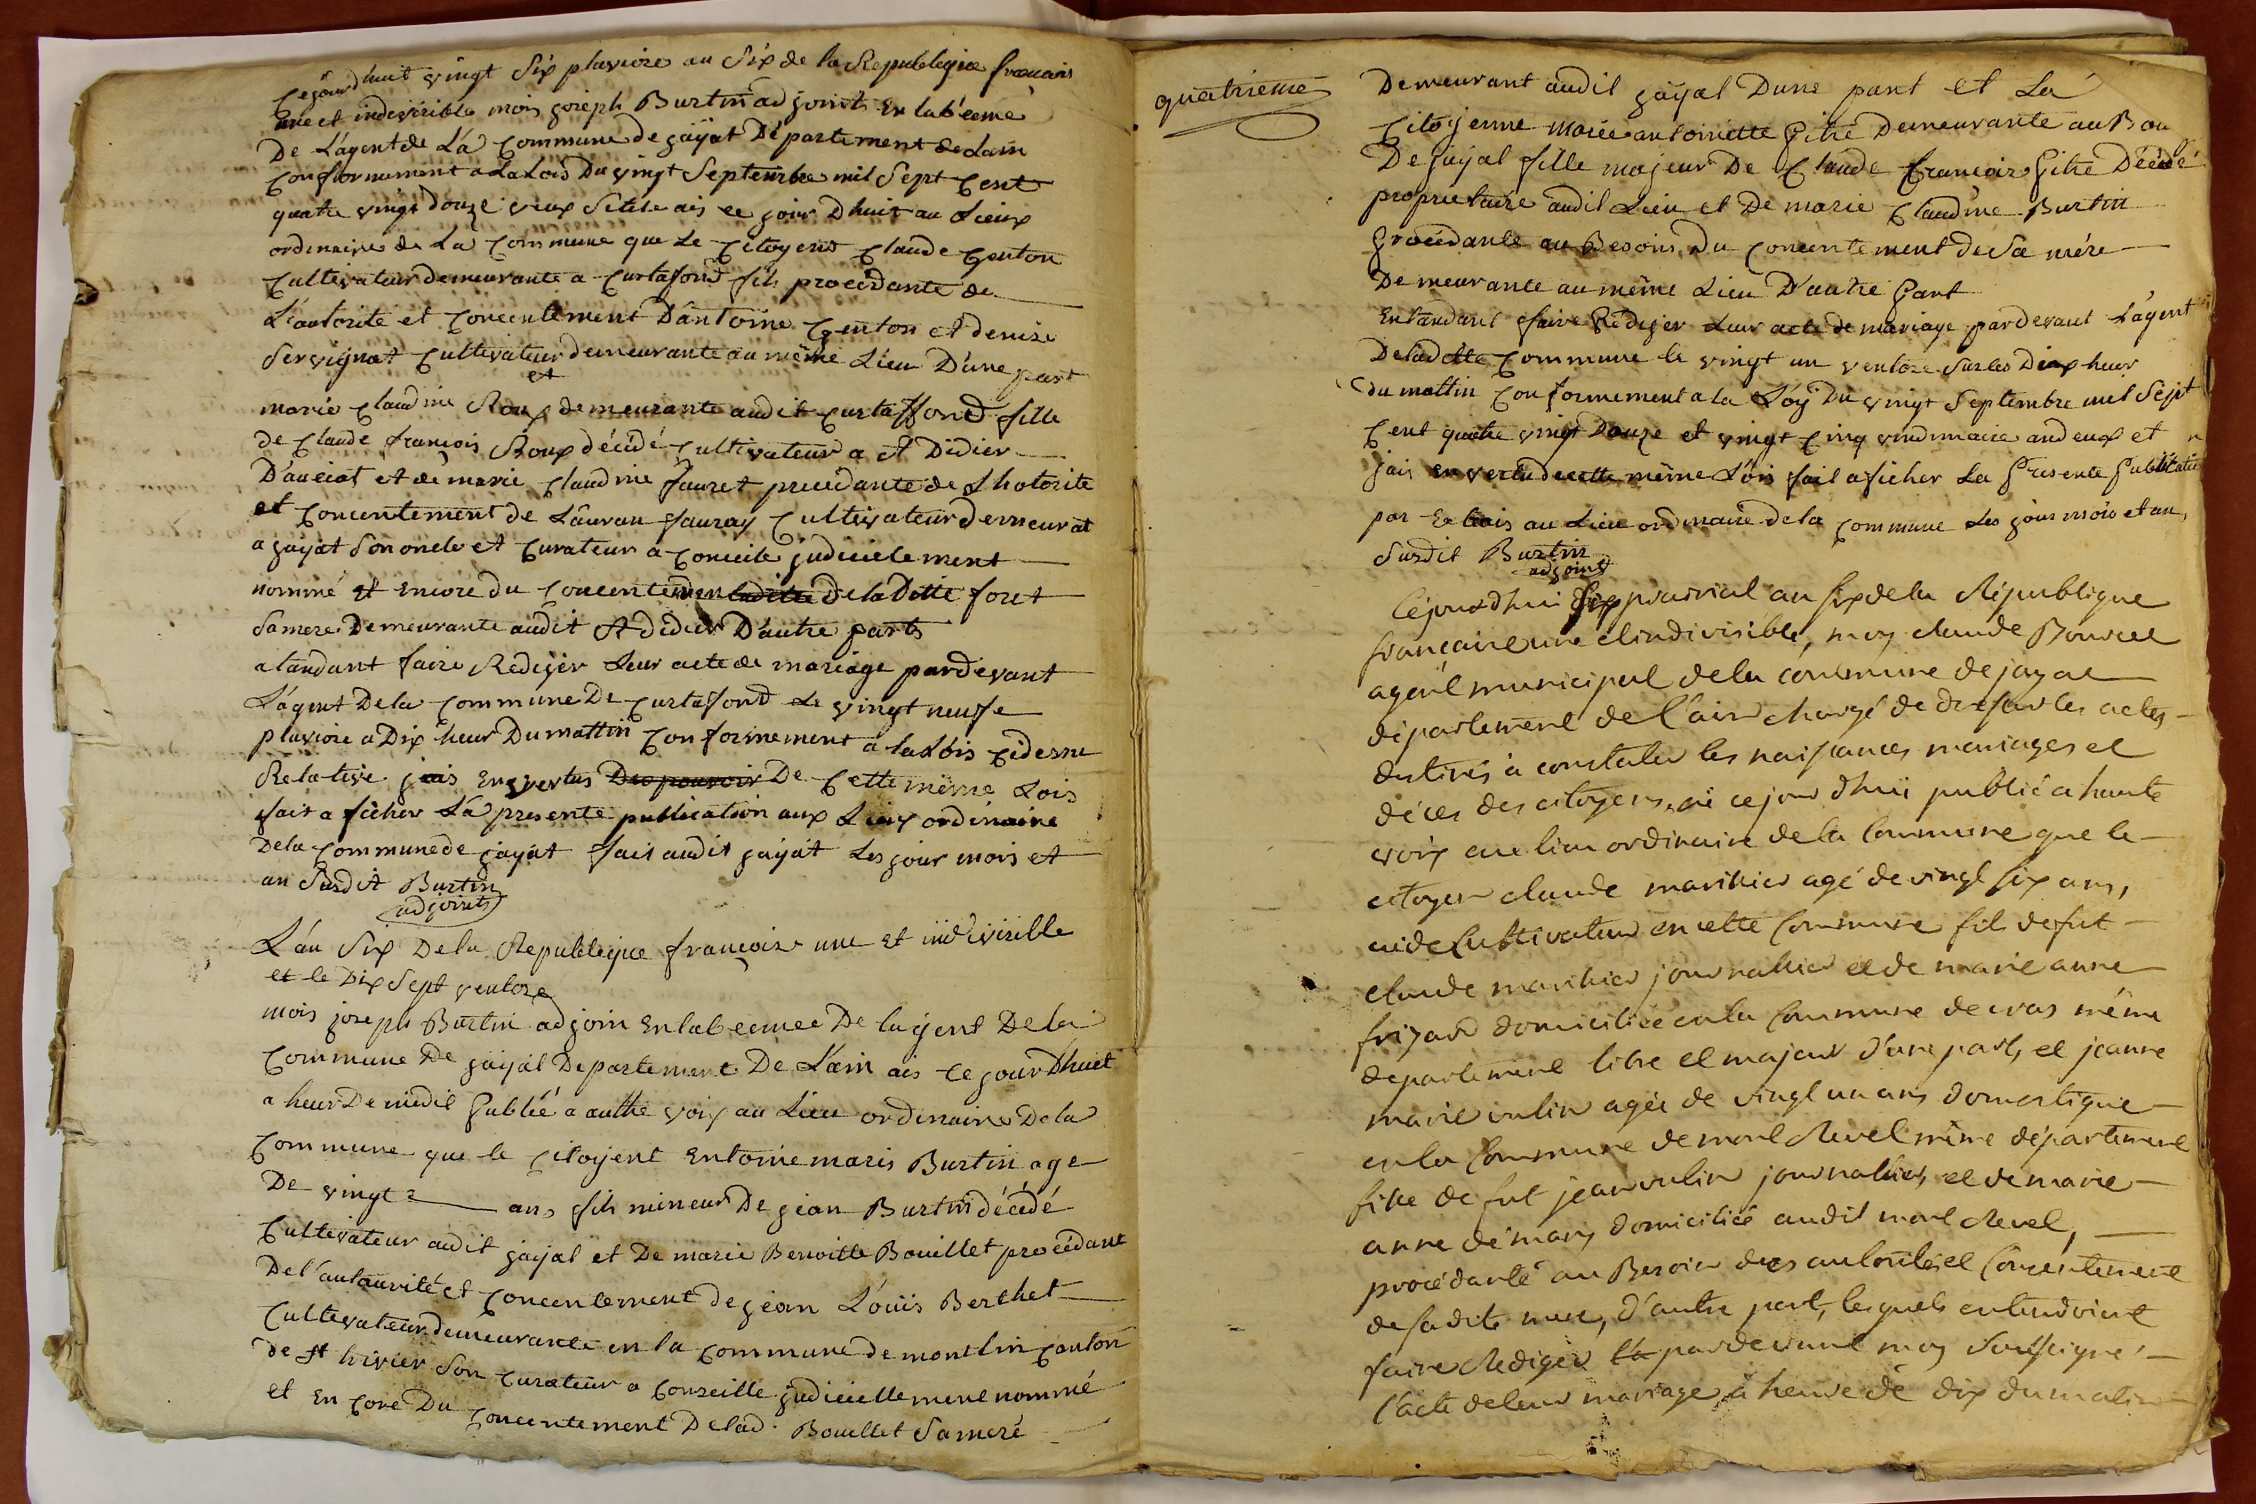 Cejourdhuit vingt Six pluviore an Six de la Republeque francais
une et indevisible mois joseph Burtin adjoint En labceme
De Lágent de Lá Commune de jayat Département de Lain
Conformement a la Lois Du vingt Septembre mil Sept Cent
quatre vingt douze ais ce jour Dhuit au Lieux
ordinaire de La Commune que Le Citoyent Claude Genton
Cultevateur demeurante a Curtafond fils procedante de
L'autorite et Concentement Dântoine Genton et denise
Servignat Cultivateur demeurante au même Lieu D'une part
et
marie Claudine Roux demeurante audit Curtaffond fille
de Claude francois Roux décédé Cultivateur a St Didier
D'auciat et de marie Claudine fauret precedante de Lhotorite
et Concentement de Lauran fauray Cultivateur demeurat
a jayat Son oncle et Curateur a Conceile judicielement
nommé et Encore du Concentemen ladite De la Ditte foret
Samere Demeurante audit St didier D'autre parts
atandant faire Redigér Leur acte de mariage pardevant
L'ágent De la Commune De Curtafond Le vingt neuffe
pluviore a Dix heur Du mattin Conformement a la Lois Cidesue
Relative jais En vertus Des pouvoir De Cette même Lois
fait a ficher Lá presente publication aux Lieux ordinaire
De la Commune de jayat fait audit jayat Les jour mois et
an Susdit Burtin
adjoint
Lán Six De la Republeque françoise une et indivisible
et le Dix Sept ventoze
mois joseph Burtin adjoin En labcemee De lagent De la
Commune De jayat Departement De Láin ais ce jour Dhuet
a heur De midit Publié a authe voix au Lieu ordinaire De la
Commune que le Citoyent Entoinemaris Burtin age
De vingt 2 ans fils mineur De jean Burtin décédé
Cultivateur audit jayat et De marie Benoitte Bouillet procédant
De l'autaurité et Concentement de jean Loüis Berthet
Cultevateur demeurante en la Commune de montlin Canton
de St trivier Son Curateur a Conseille judiciellement nommé
et En Core Du Concentement De lad. Bouillet Sameré
quatrieme
Demeurant audit jayat Dune part et Lá
Citoyenne marie antoinette Pitre Demeurante au Bou
De jayat fille majeur De Claude francois Pitre Décédé
proprietaire audit Lieu et De marie Claudine Burtin
Procédante au Besoins Du Concentement de Sa mère
Demeurante au même Lieu D'autre Part
Entandant faire Rédiger Leur acte de mariage pardevant Lágent
De ladette Commune le vingt un ventoze Sur les Dix heur
du mattin Conformement a la Loy Du vingt Septembre mil Sept
Cent quatre vingt Douze et vingt Cinq vindimaire an deux et
jais en vertu de cette même Lois fait aficher La Presente Publication
par Extrais au Lieu ordinaire de la Commune Les jour mois et an
Susdit Burtin
adjoint
Cejourdhui Six prairial an six de la République
française une et indivisible, moy claude Bouvet
agent municipal de la commune de jayat
département de l'ain chargé de dresser les actes
destinés à constater les naissances mariages et
décès des citoyens, ai cejourdhui publié a haute
voix au lieu ordinaire de la Commune que le
citoyen claude marthier agé de vingt six ans,
aide Cultivateur en cette Commune fils de fut
claude marthier journallier et de marie anne
frizard domiciliée en la Commune de cras même
département libre et majeur d'une part, et jeanne
marie vulin agée de vingt un ans domestique
en la Commune de mont Revel même département
fille de fut jean vulin journallier, et de marie
anne démary domiciliée audit mont Revel,
procédante au Besoin des autorité et Consentement
de sadite mere, d'autre part, lesquels entendoient
faire Rediger la pardevant moy soussigné
l'acte de leur mariage à heure de dix du matin